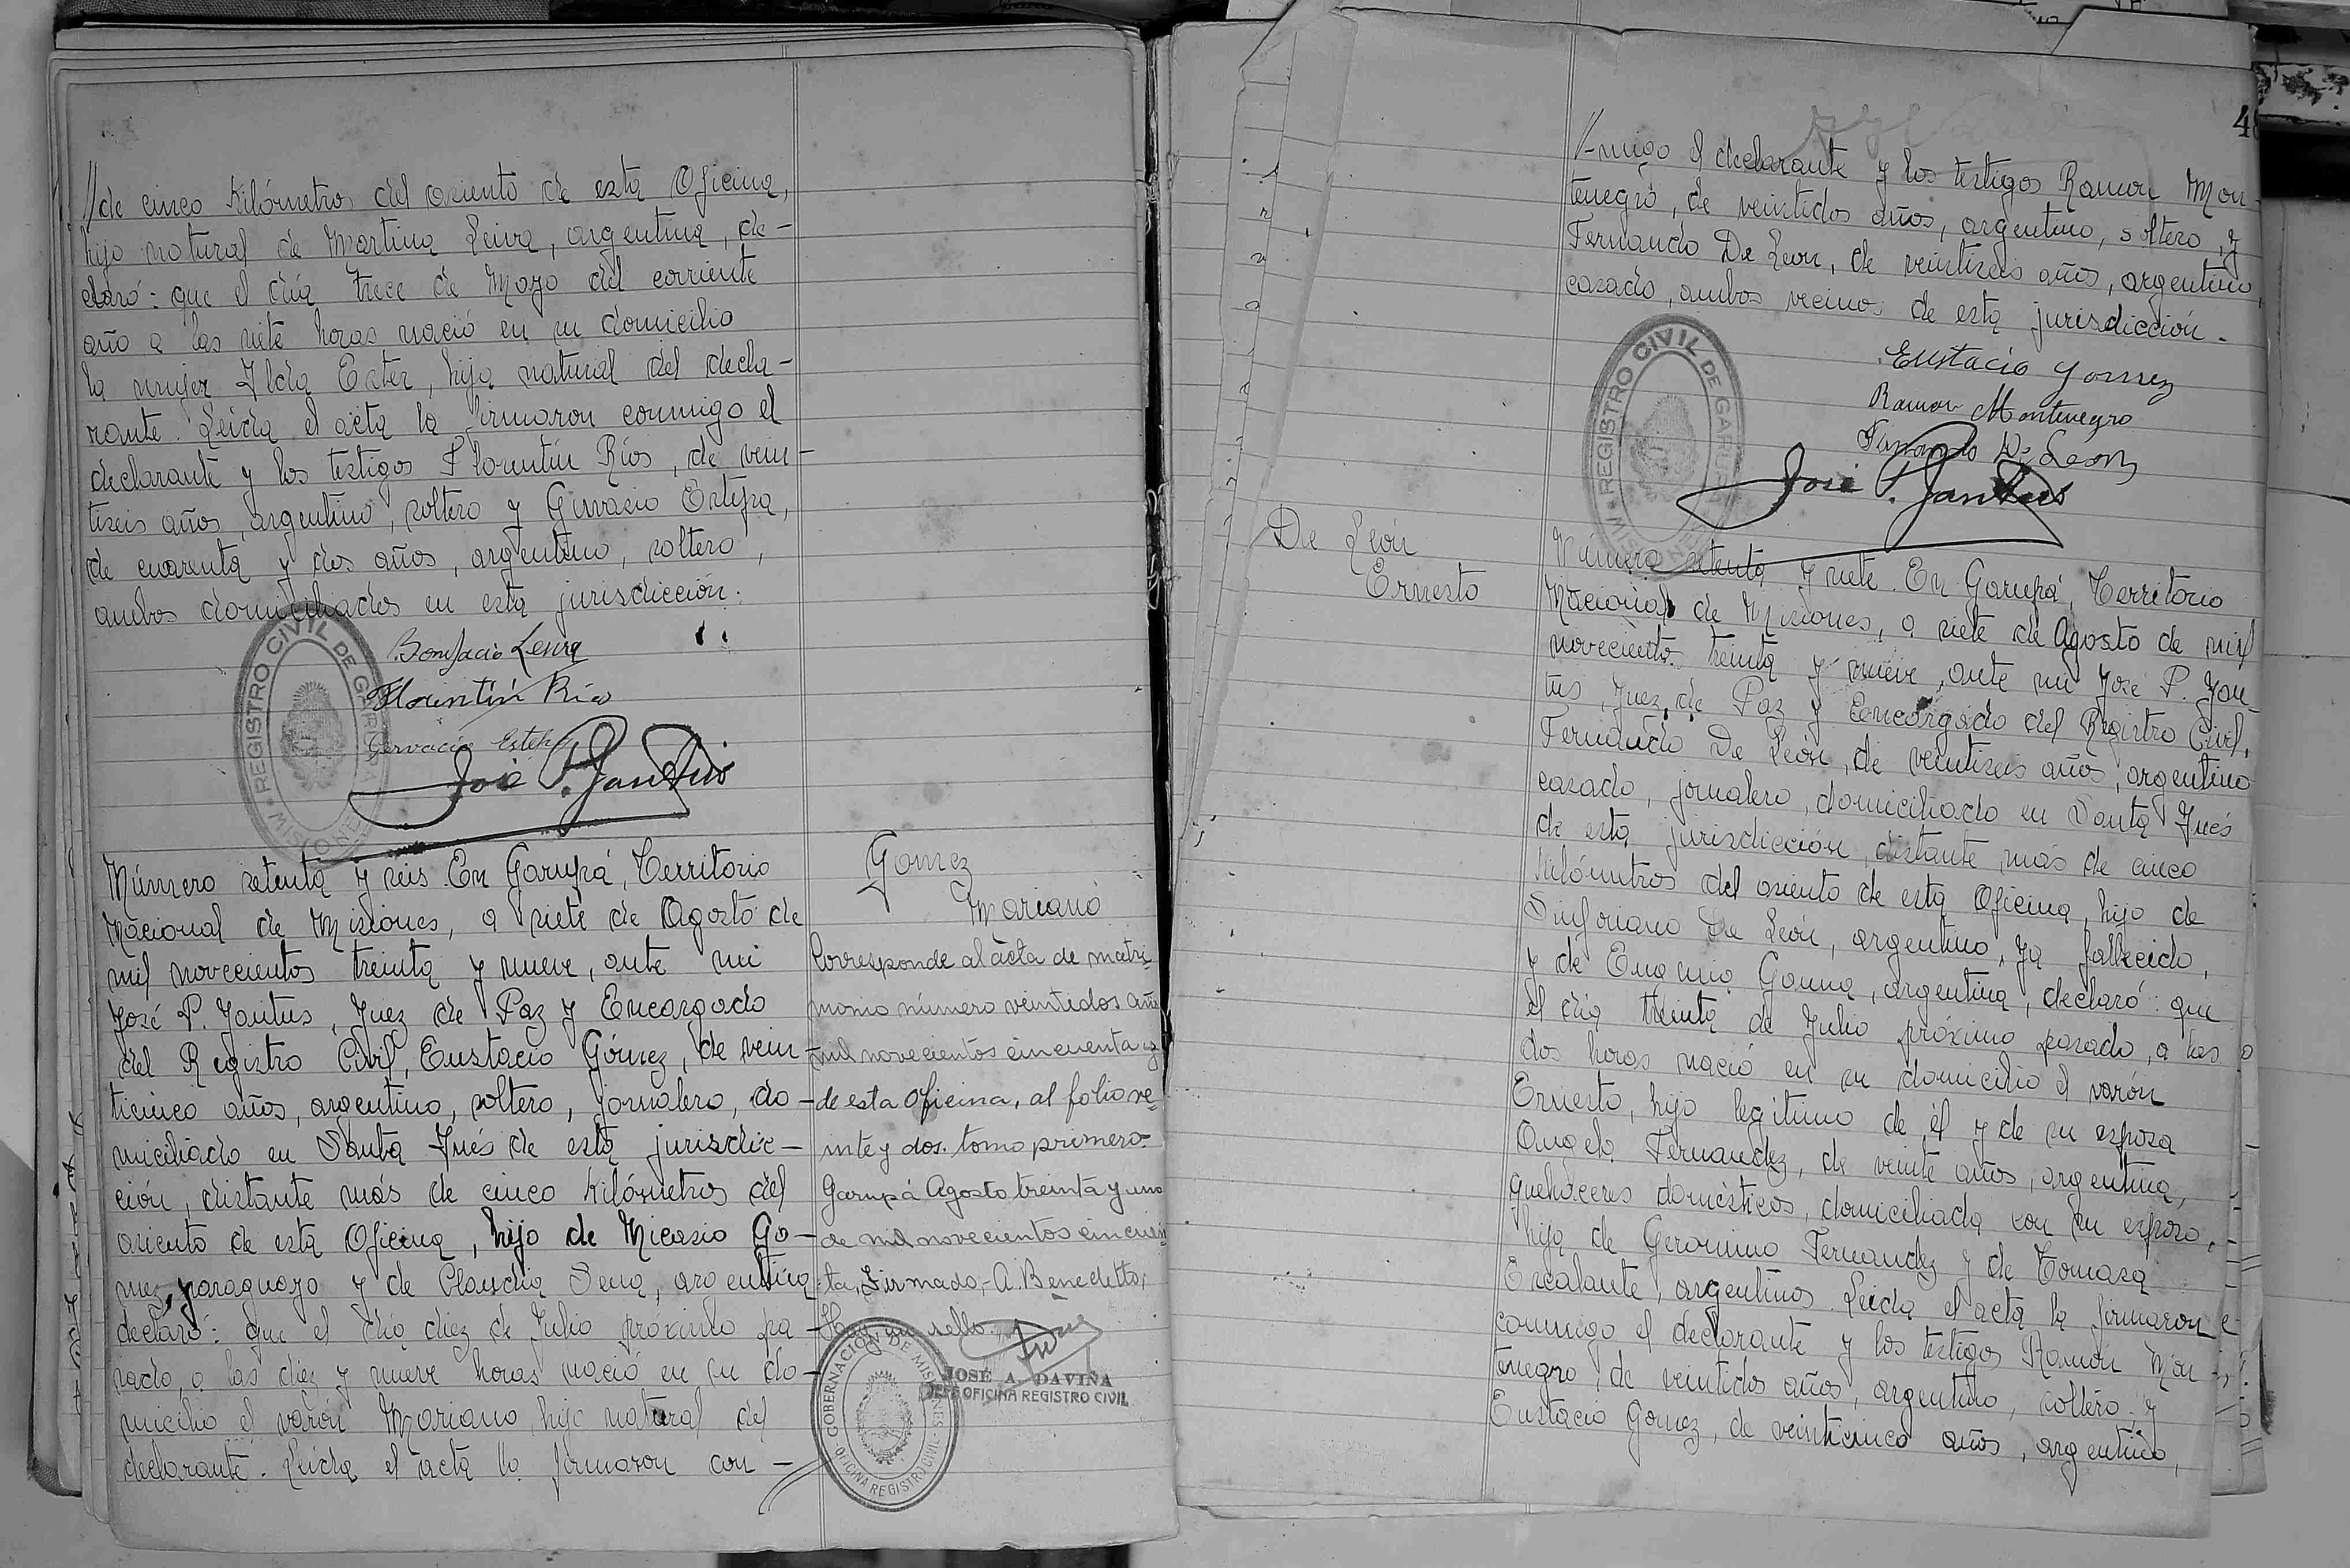 //de cinco kilómetros del asiento de esta Oficina,
hijo natural de Martina Leiva, argentina, de-
claró: que el día trece de Mayo del corriente
año a las siete horas nació en su domicilio
la mujer Ilda Ester, hija natural del decla-
rante. Leída el acta la firmaron conmigo el
declarante y los testigos Florentín Ríos, de vein-
tiseis años, argentino, soltero y Gervasio Estepa,
de cuarenta y dos años, argentino, soltero,
ambos domiciliados en esta jurisdicción.
Bonifacio Leiva
Florentín Rios
Gervacio Estepa
José P. Jantus
REGISTRO CIVIL DE GARUPA
MISIONES
Número setenta y seis. En Garupá, Territorio
Nacional de Misiones, a siete de Agosto de
mil novecientos treinta y nueve, ante mi
José P. Jantus, Juez de Paz y Encargado
del Registro Civil, Eustacio Gómez, de vein-
ticinco años, argentino, soltero, jornalero, do-
miciliado en Santa Inés de esta jurisdic-
ción, distante más de cinco kilómetros del
asiento de esta Oficina, hijo de Nicasio Go-
mez, paraguayo y de Claudia Sena, argentina
declaró: que el día diez de Julio próximo pa-
sado, a las diez y nueve horas nació en su do-
micilio el varón Mariano, hijo natural del
declarante. Leída el acta la firmaron con-
Gomez
Mariano
Corresponde al acta de matri-
monio número veintidos año
mil novecientos cincuenta
de esta Oficina, al folio ve-
inte y dos. tomo primero.
Garupá Agosto treinta y uno
de mil novecientos cincuen-
ta, Firmado,- A. Benedetto,
Hay un sello.
GOBERNACION DE MISIONES
OFICINA REGISTRO CIVIL
JOSÉ A. DAVIÑA
JEFE OFICINA REGISTRO CIVIL
4
//-migo el declarante y los testigos Ramon Mon-
tenegro, de veintidos años, argentino, soltero, y
Fernando De Leon, de veintiseis años, argentino,
casado, ambos vecinos de esta jurisdicción.
Eustacio Gomez
Ramon Montenegro
Fernando De Leon
José P. Jantus
REGISTRO CIVIL DE GARUPA
De León
Ernesto
Número setenta y siete. En Garupá, Territorio
Nacional de Misiones, a siete de Agosto de mil
novecientos treinta y nueve, ante mi José P. Jan-
tus, Juez de Paz y Encargado del Registro Civil,
Fernando De León, de veintiseis años, argentino
casado, jornalero, domiciliado en Santa Inés
de esta jurisdicción, distante más de cinco
kilómetros del asiento de esta Oficina, hijo de
Sinforiano De León, argentino, ya fallecido,
y de Eugenia Gauna, argentina, declaró: que
el día treinta de Julio próximo pasado, a las
dos horas nació en su domicilio el varón
Ernesto, hijo legítimo de él y de su esposa
Angela Fernandez, de veinte años, argentina,
quehaceres domésticos, domiciliada con su esposo,
hija de Geronimo Fernandez y de Tomasa
Escalante, argentinos. Leída el acta la firmaron
conmigo el declarante y los testigos Ramón Mon-
tenegro, de veintidos años, argentino, soltero, y
Eustacio Gomez, de veinticinco años, argentino,